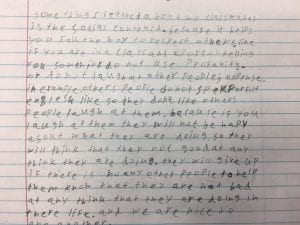 some things learned about my classmates
is the social contract. because it helps
you fallin the way to respect others. like
is you are in a class and a person telling
you somethink do not use profanity.
or do not laugh at other people's expense.
in example. others people do not speak person
english like. so they don't like others
people laugh at them. because is you
laugh at them they will not be happy
about what they are doing. so they
will think that they not good at any
think they are doing. they will give up
is there is no any other people to help
them know that they are not bad
at any think that they are doing in
there life. and we are nice to
one another.